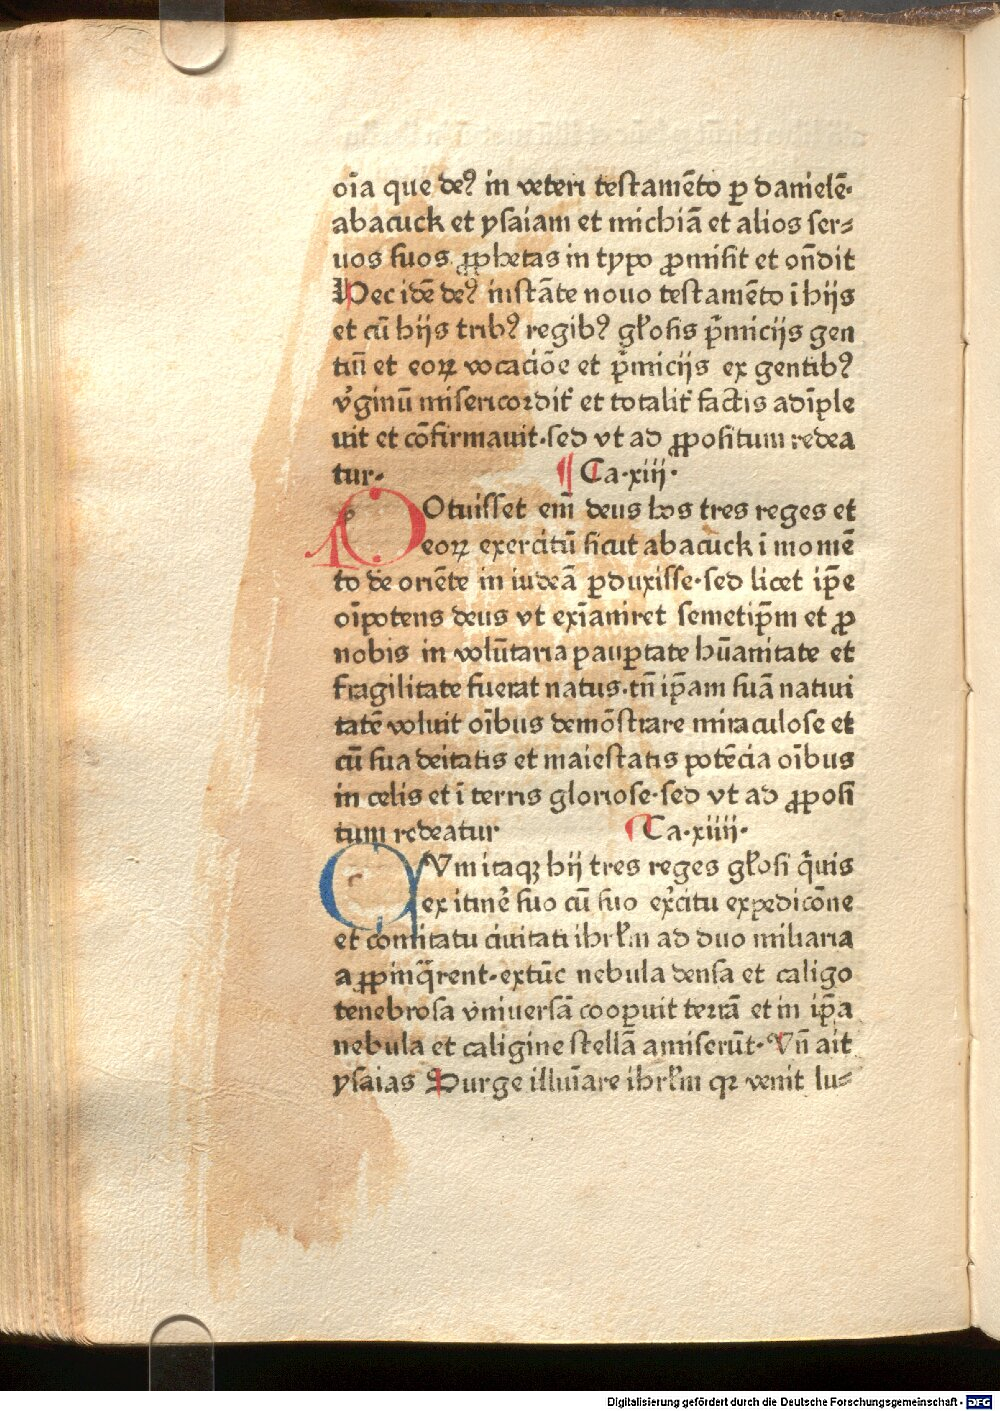 oīa que deꝰ in veteri testamēto ꝑ danielē·
abacuck et ysaiam et michiā et alios ser⸗
uos suos ꝓphetas in typo ꝓmisit et on̄dit
Hec idē deꝰ instāte nouo testamēto ī hijs
et cū hijs tribꝰ regibꝰ gl'osis p̄micijs gen
tiū et eoꝝ vocaciōe et p̄micijs ex gentibꝰ
v'ginū misericordit' et totalit' factis adīple
uit et cōfirmauit·sed vt ad ꝓpositum redea
tur· ¶ Ca·xiij·
POtuisset em̄ deus hos tres reges et
eoꝝ exercitū sicut abacuck ī momē
to de oriēte in iudeā ꝑduxisse·sed licet ip̄e
oīpotens deus vt exīaniret semetip̄m et ꝓ
nobis in volūtaria pauꝑtate hūanitate et
fragilitate fuerat natus·tn̄ ip̄am suā natiui
tatē voluit oībus demōstrare miraculose et
cū sua deitatis et maiestatis potēcia oībus
in celis et ī terris gloriose·sed vt ad ꝓposi
tum redeatur ¶ Ca·xiiij·
QVm itaqꝫ hij tres reges gl'osi q̄uis
ex itinē suo cū suo ex'citu expedicōne
et comitatu ciuitati ihrl'm ad duo miliaria
aꝓpinq̄rent·extūc nebula densa et caligo
tenebrosa v̄niuersā cooꝑuit terrā et in ip̄a
nebula et caligine stellā amiserūt·Vn̄ ait
ysaias Surge illuīare ihrl'm qꝛ venit lu⸗
Digitalisierung gefördert durch die Deutsche Forschungsgemeinschaft - DFG